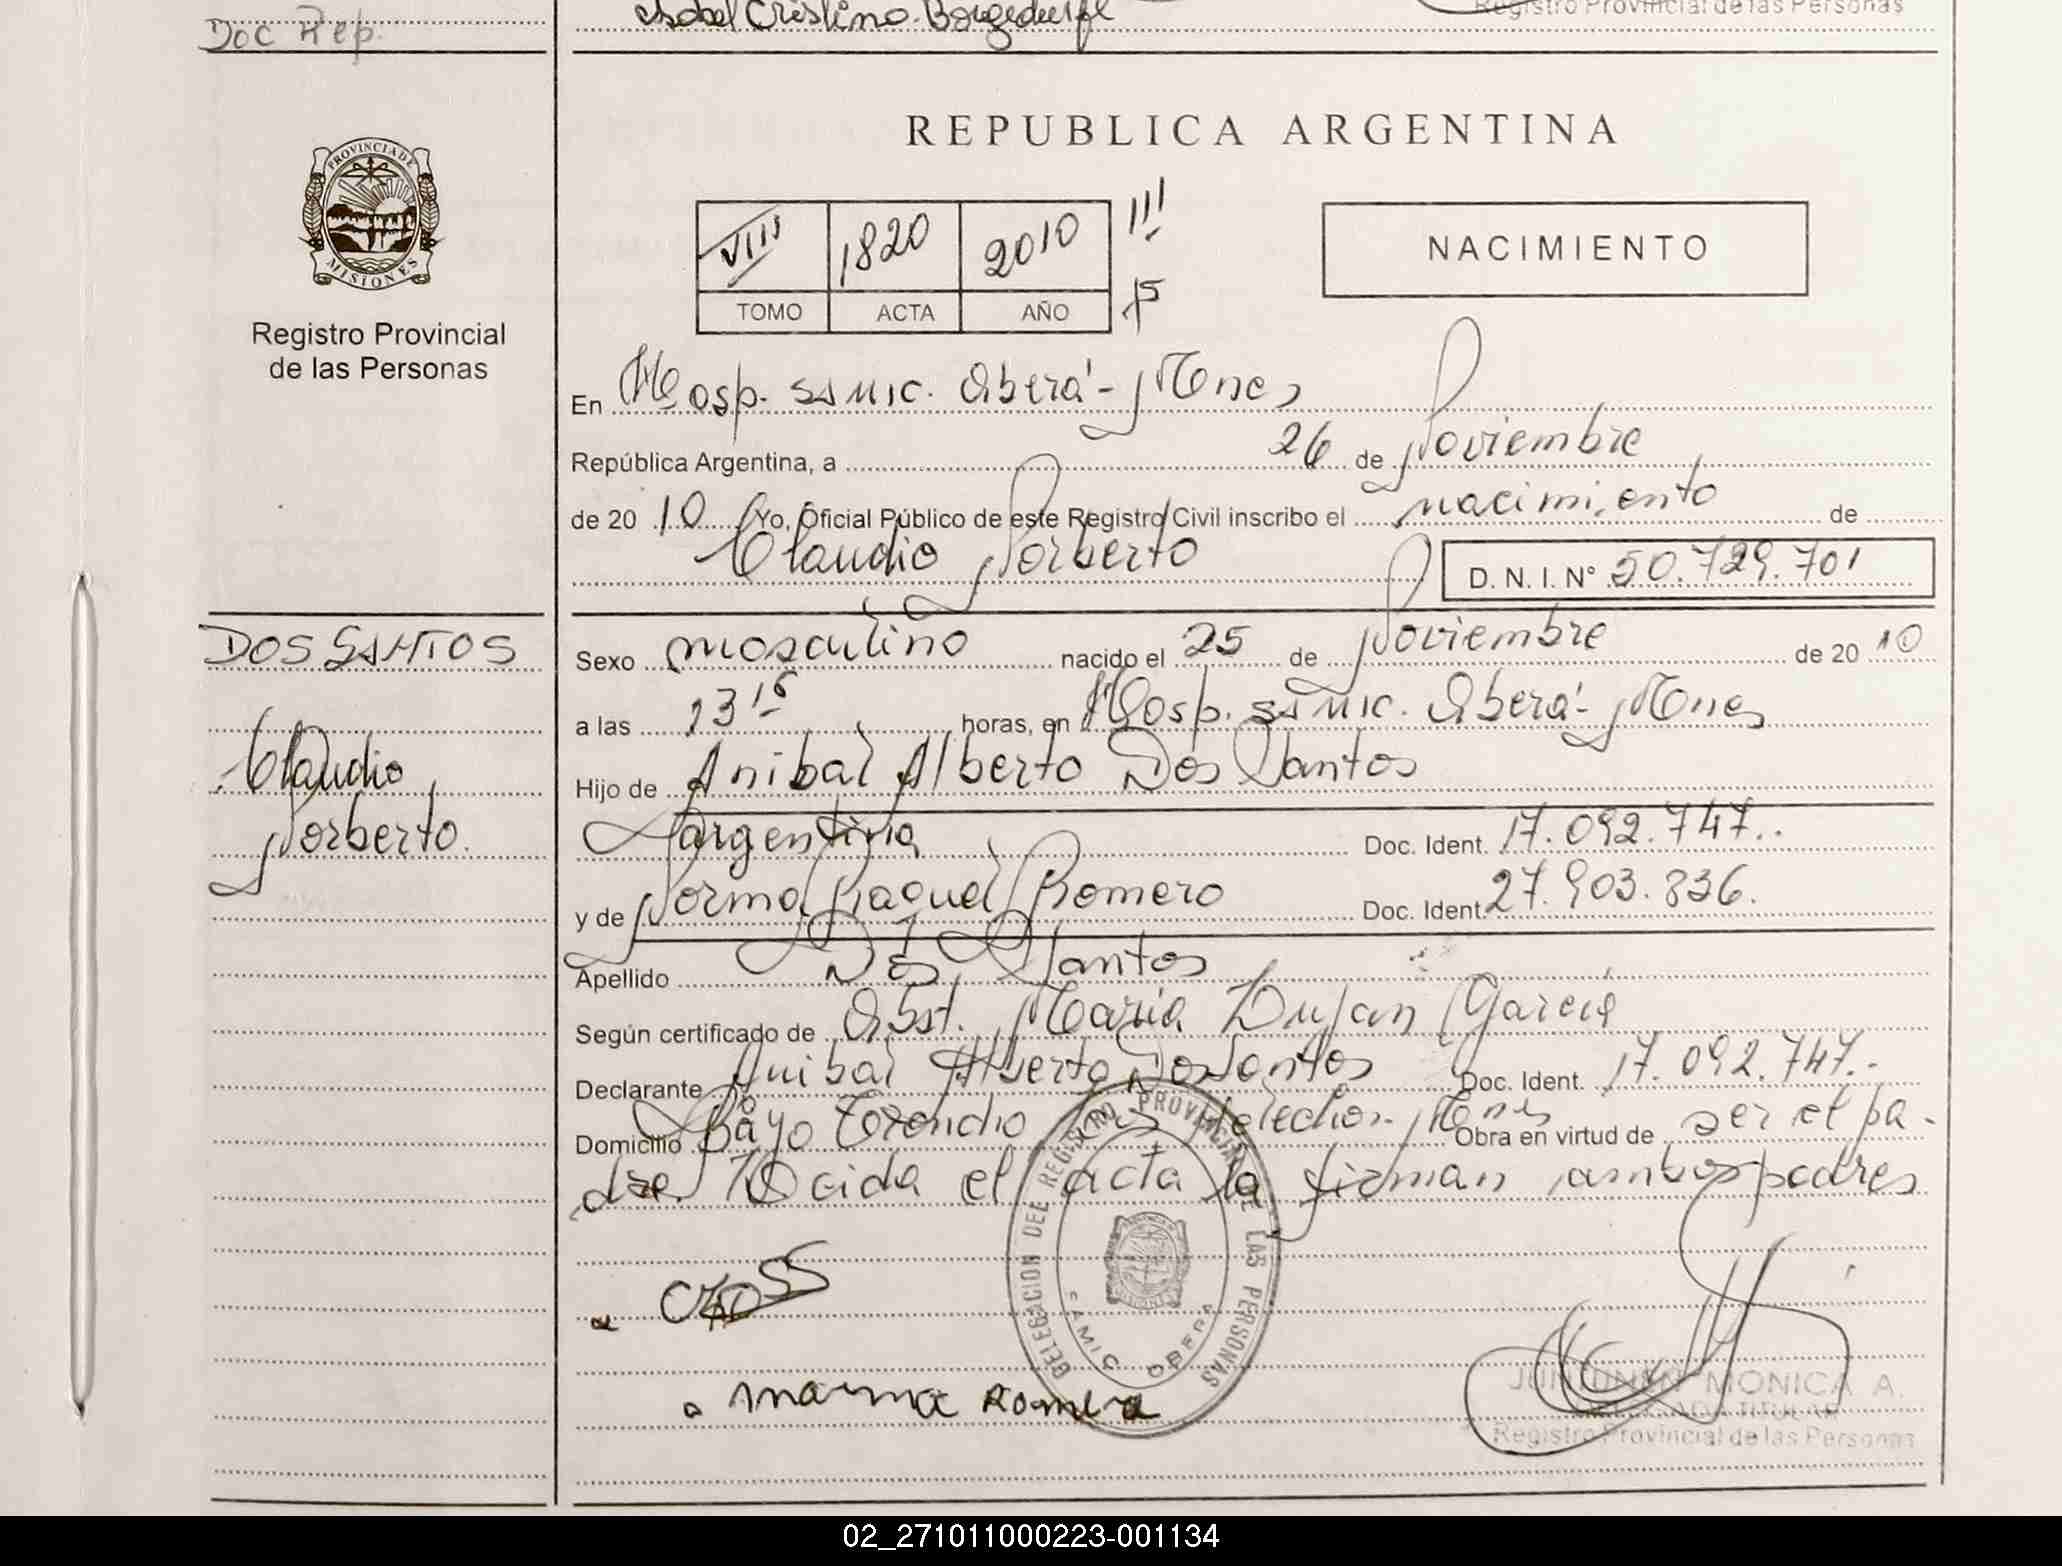 Doc Rep.
Registro Provincial de las Personas
REPUBLICA ARGENTINA
PROVINCIA DE
MISIONES
Registro Provincial
de las Personas
VIII 1820 2010 III
TOMO ACTA AÑO
NACIMIENTO
En Hosp. SAMIC. Oberá - Mnes
República Argentina, a 26 de Noviembre
de 2010 Yo, Oficial Público de este Registro Civil inscribo el nacimiento de
Claudio Norberto D. N. I. Nº 50.729.701
DOS SANTOS
Claudio
Norberto.
Sexo masculino nacido el 25 de Noviembre de 2010
a las 13 15 horas, en Hosp. SAMIC. Oberá - Mnes
Hijo de Anibal Alberto Dos Santos
Argentina Doc. Ident. 17.092.747..
y de Norma Raquel Romero Doc. Ident. 27.903.836.
Apellido Dos Santos
Según certificado de Obst. María Lujan Garcia
Declarante Anibal Alberto Dos Santos Doc. Ident. 17.092.747.-
Domicilio Bº Aº Torondio derecho. Mnes Obra en virtud de ser el pa-
dre. Leida el acta la firman ambos padres
DELEGACION DEL REGISTRO PROVINCIAL DE LAS PERSONAS
SAMIC OBERA
Romera
MONICA A.
DELEGADA TITULAR
Registro Provincial de las Personas
02_271011000223-001134